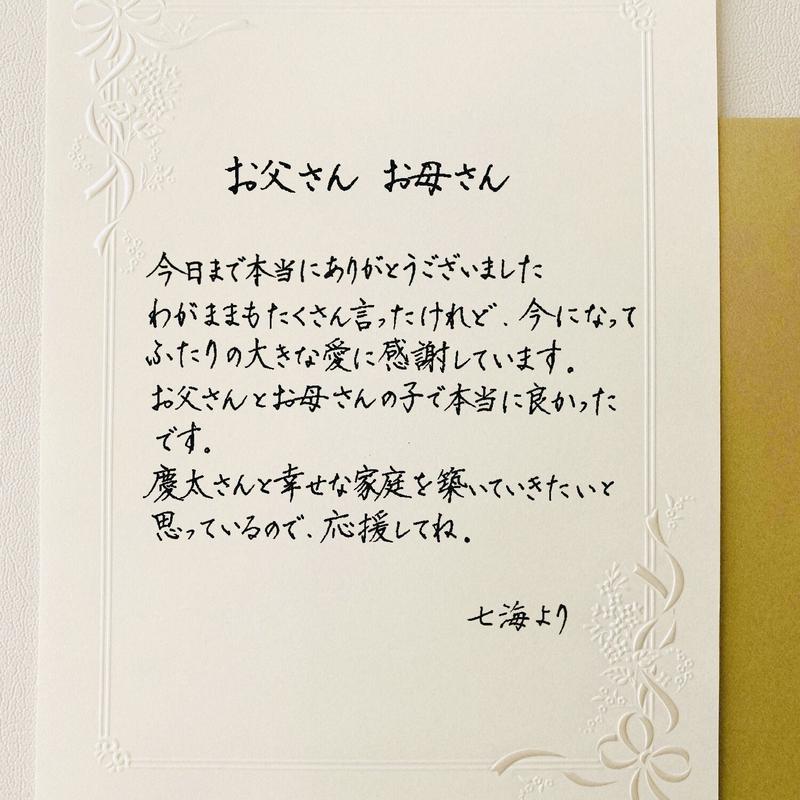 お父さん お母さん
今日まで本当にありがとうございました
わがままもたくさん言ったけれど、今になって
ふたりの大きな愛に感謝しています。
お父さんとお母さんの子で本当に良かった
です。
慶太さんと幸せな家庭を築いていきたいと
思っているので、応援してね。
七海より